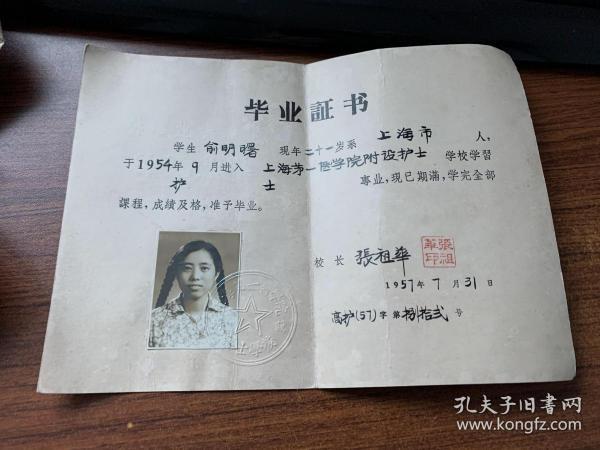 毕业証书
学生 俞明曙 现年二十一岁系 上海市 人,
于1954年9月进入 上海第一医学院附设护士 学校学習
护士 事业, 现已期满, 学完全部
課程, 成績及格, 准予毕业。
校长 張祖华
張祖華印
1957年7月31日
高护(57)字第捌拾弍号
孔夫子旧書网
www.kongfz.com